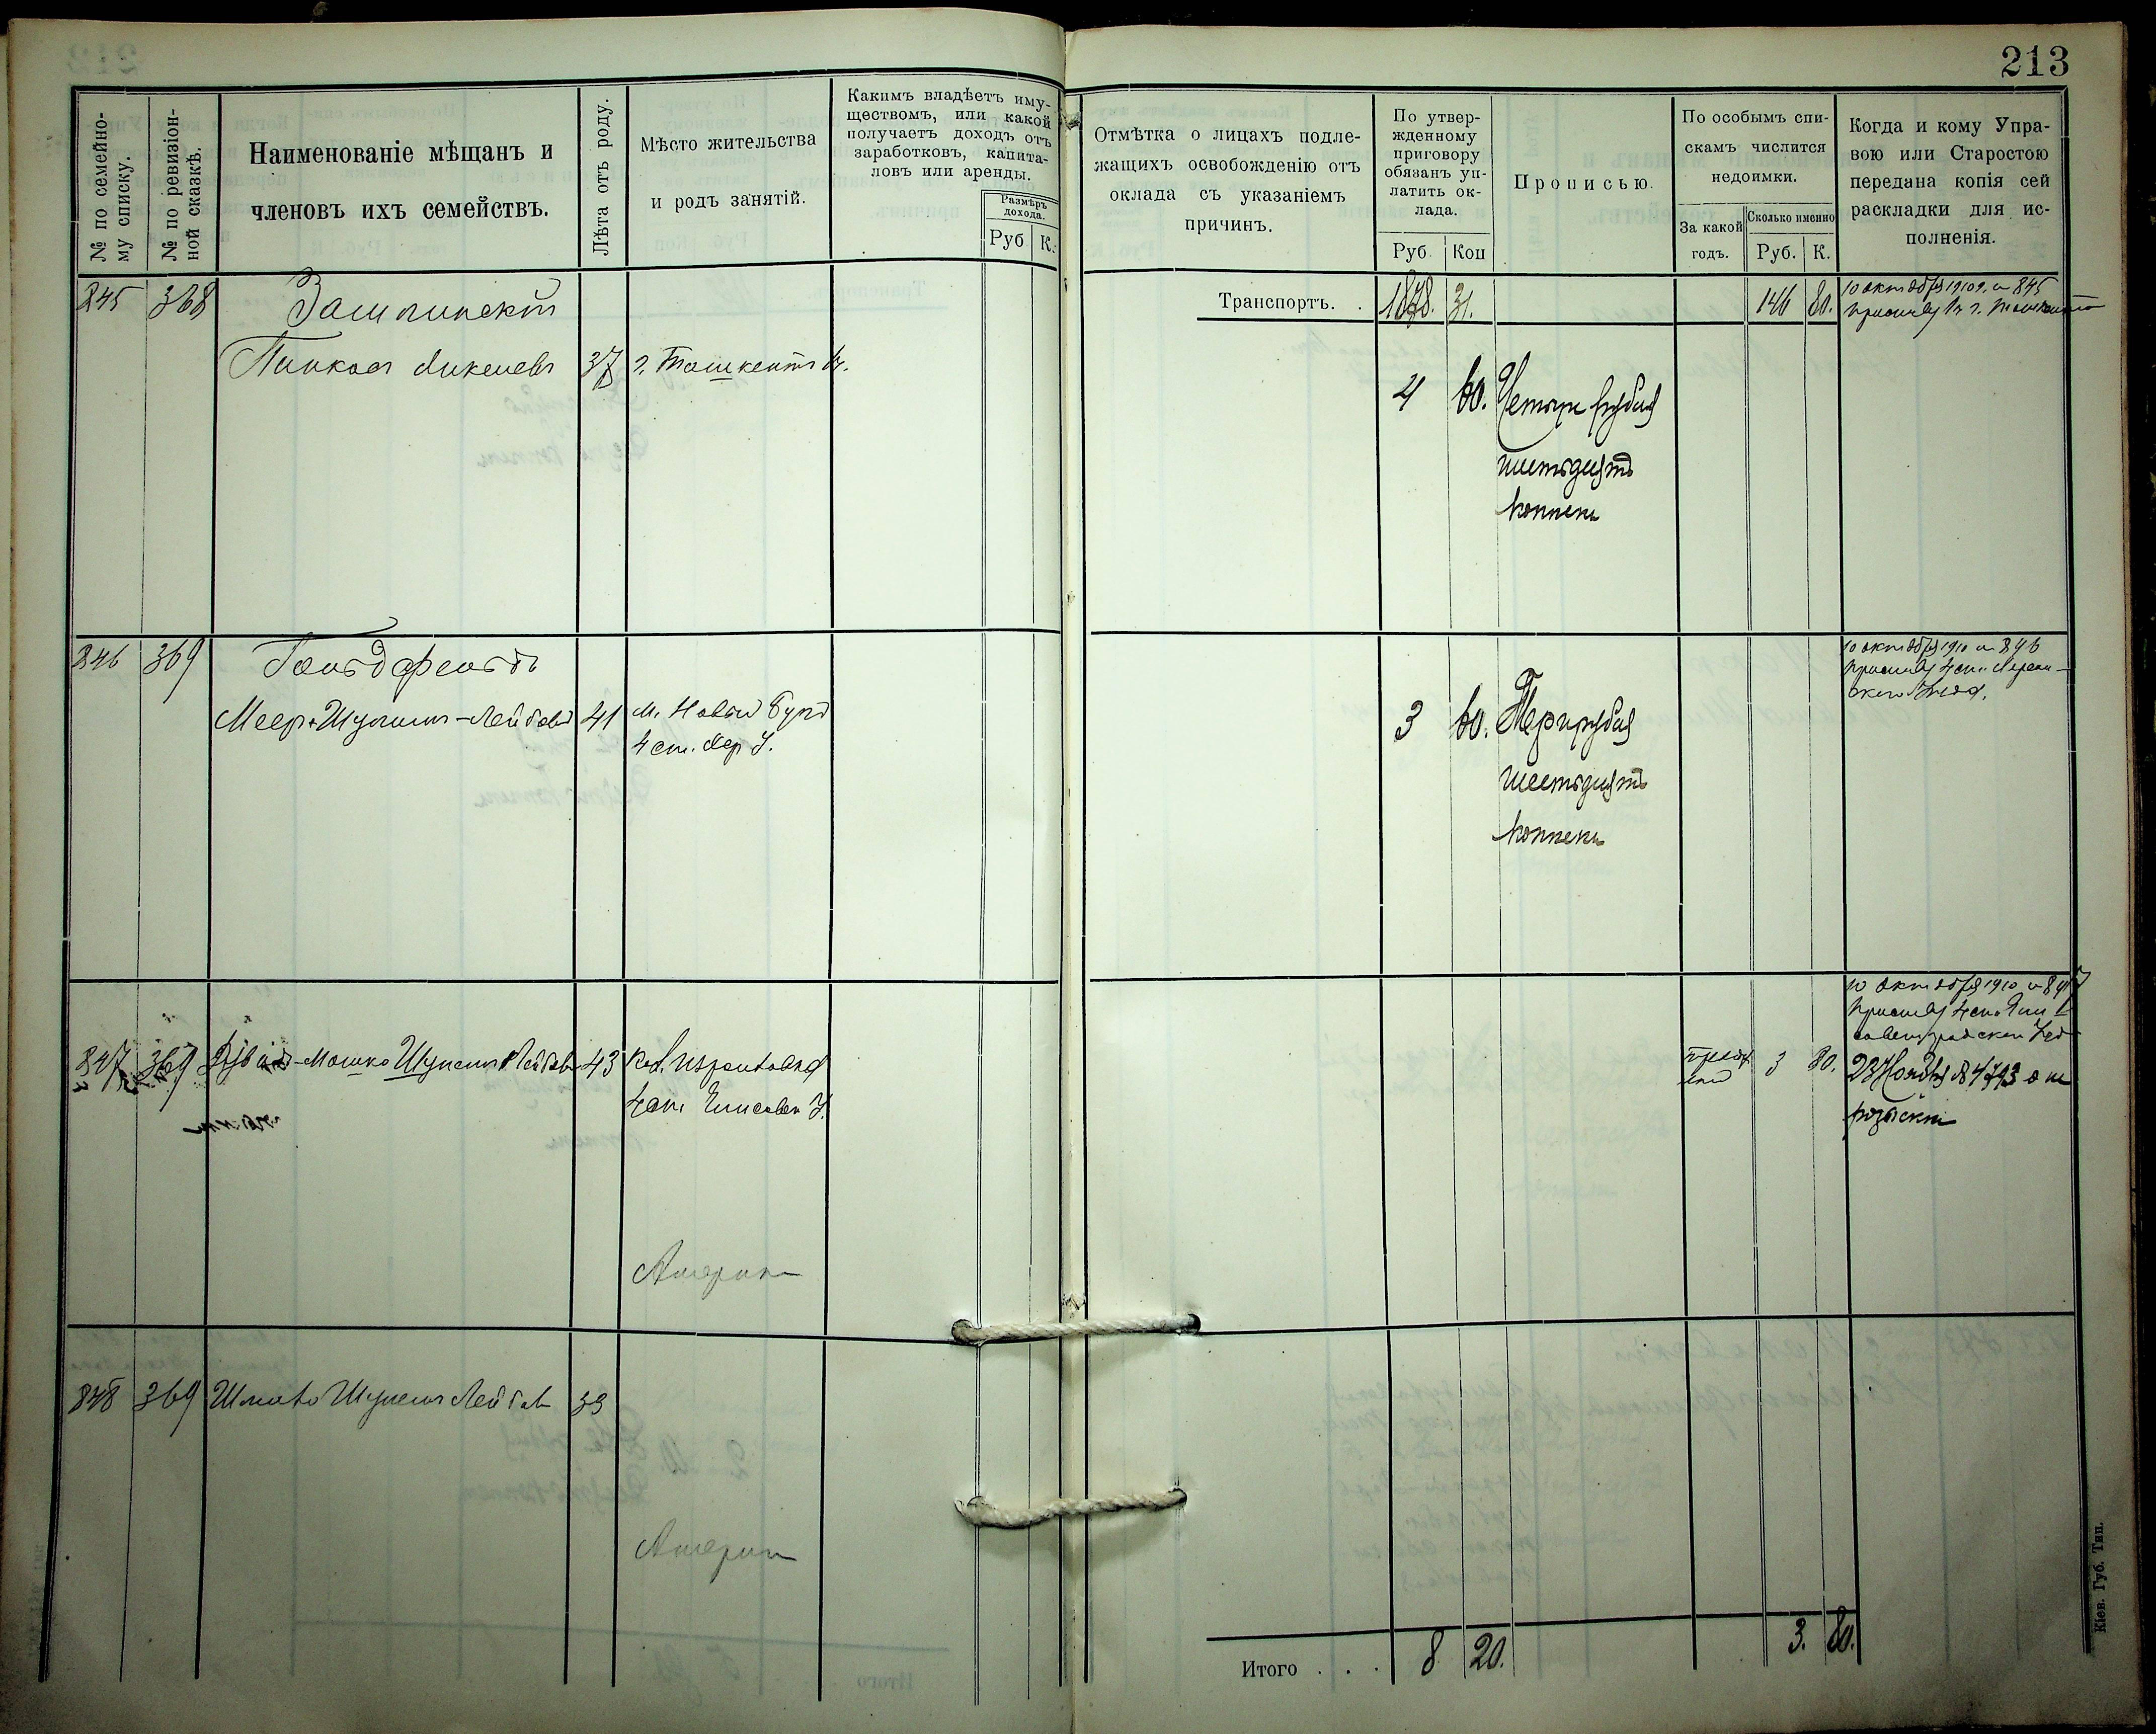 213
№ по семейно-
му списку.
№ по ревизіон-
ной сказкѣ.
Наименованіе мѣщанъ и
членовъ ихъ семействъ.
Лѣта отъ роду.
Мѣсто жительства
и родъ занятій.
Какимъ владѣетъ иму-
ществомъ, или какой
получаетъ доходъ отъ
заработковъ, капита-
ловъ или аренды.
Размѣръ
дохода.
Руб К.
Отмѣтка о лицахъ подле-
жащихъ освобожденію отъ
оклада съ указаніемъ
причинъ.
По утвер-
жденному
приговору
обязанъ уп-
латить ок-
лада.
Руб. Коп
Прописью.
По особымъ спи-
скамъ числится
недоимки.
За какой
годъ.
Сколько именно
Руб. К.
Когда и кому Упра-
вою или Старостою
передана копія сей
раскладки для ис-
полненія.
Транспортъ. . 1878. 31. 146 80.
845 368
Пинкас 37 г. Ташкентъ
4 60. Четыре рубля
шестьдесятъ
копеекъ
10 октября 1910 г. № 845
Приставу г. Ташкента
846 369 Гольдфельдъ
Меер-Шулимъ-Лейбовъ 41 м. Новый Бугъ
4 ст. Хер. У.
3 60. Три рубля
шестьдесятъ
копеекъ
10 октября 1910 № 846
Приставу 4 ст. Херсон-
скаго Уезда.
847 369 Мошко Шулимъ Лейбовъ 43 Кол. Израилевка
4 ст. Елисавет У.
3 80.
10 октября 1910 № 847
Приставу 4 ст. Ели
саветградскаго Уез
23 Ноября № 4793 о
розыскѣ
Америка
848 369 Шмиль Шулимъ Лейбов 39
Америка
Итого . . . 8 20. 3. 80.
Кіев. Губ. Тип.